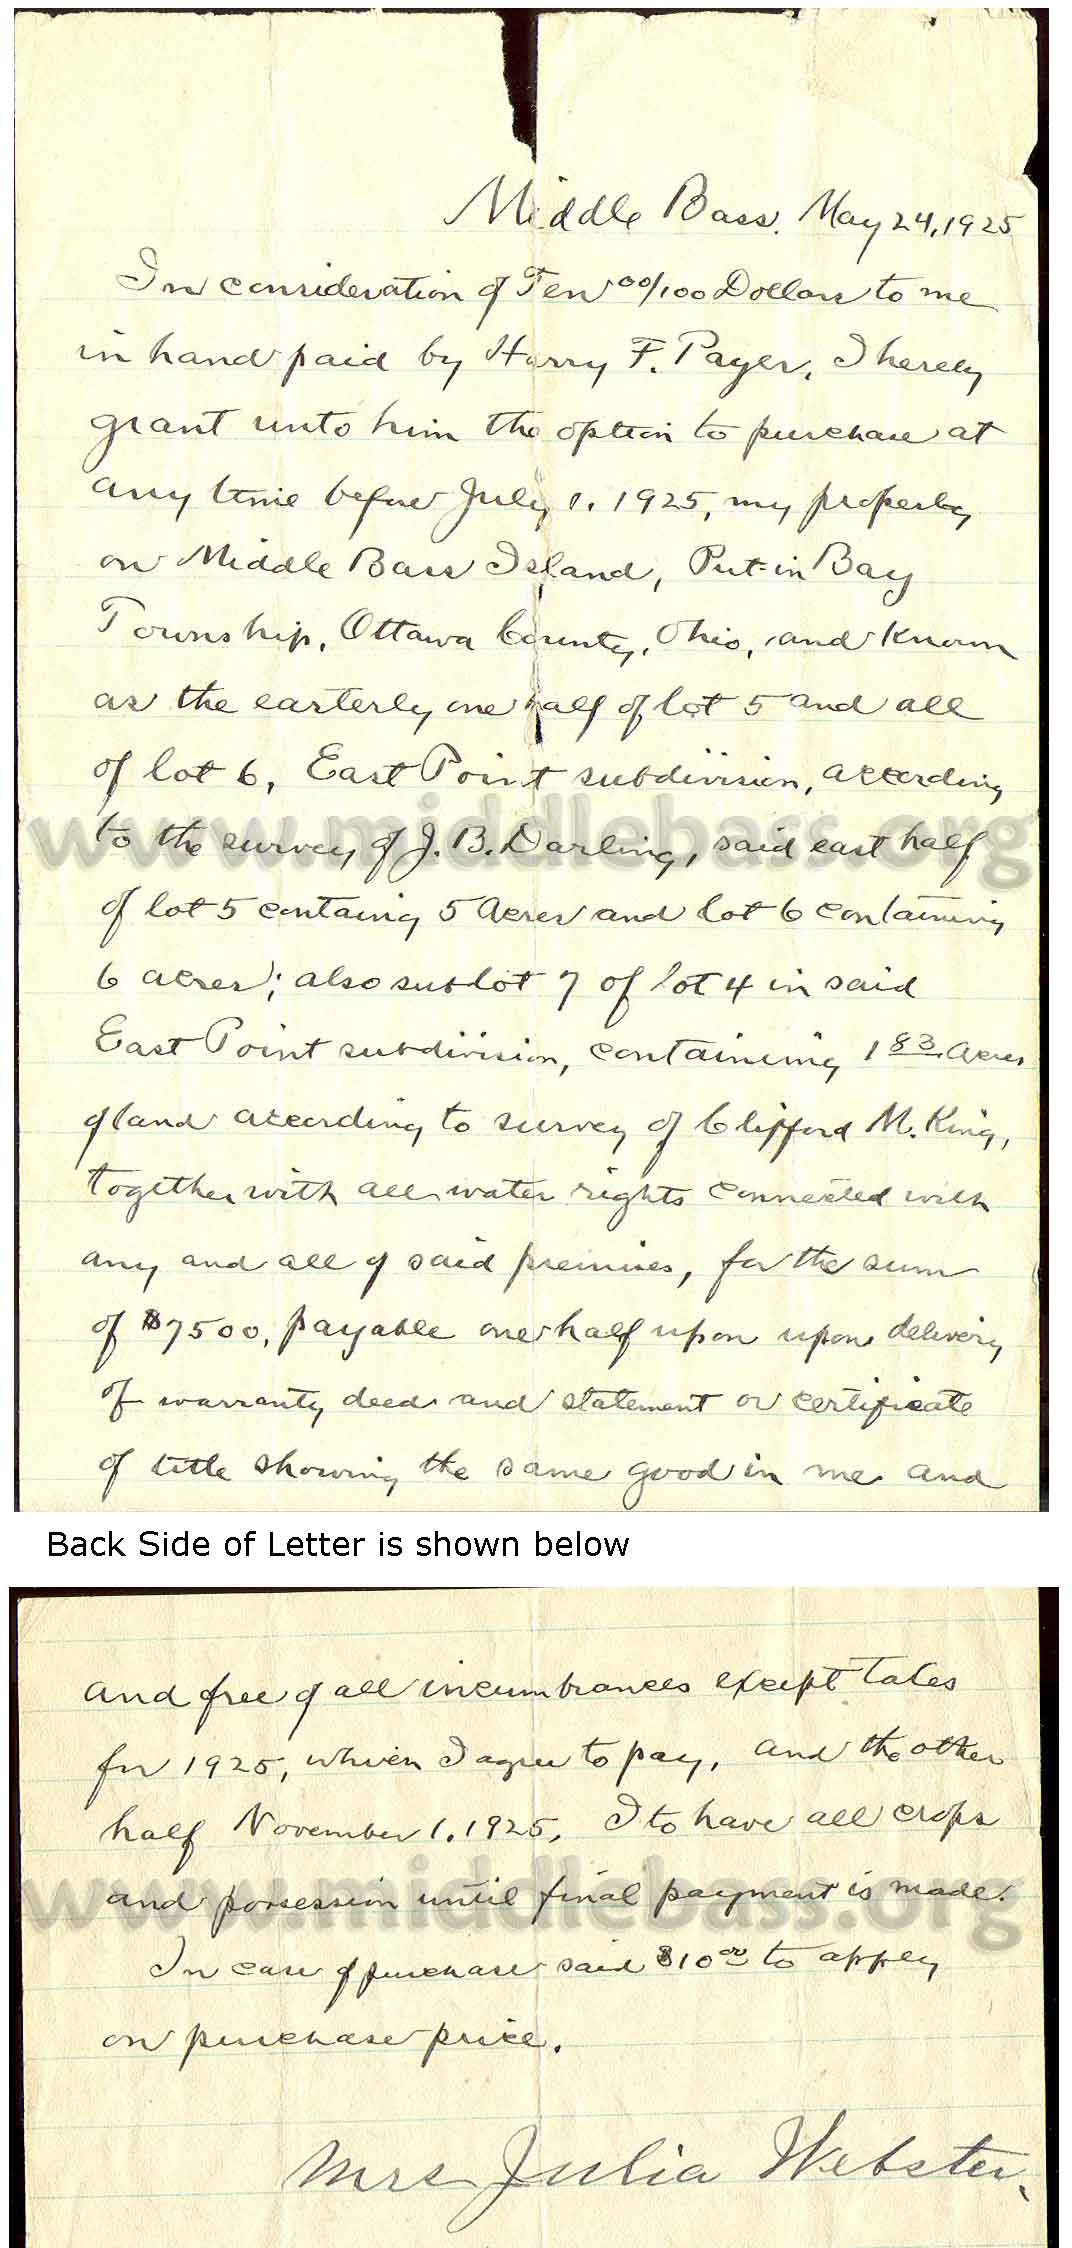 Middle Bass. May 24, 1925
In consideration of Ten 00/100 Dollars to me
in hand paid by Harry F. Payer, I hereby
grant unto him the option to purchase at
any time before July 1. 1925, my property
on Middle Bass Island, Put-in Bay
Township, Ottawa County, Ohio, and known
as the easterly one half of lot 5 and all
of lot 6, East Point subdivision, according
to the survey of J. B. Darling, said east half
of lot 5 containg 5 Acres and lot 6 containing
6 acres; also sublot 7 of lot 4 in said
East Point subdivision, containing 1 83 Acres
of land according to survey of Clifford M. King,
together with all water rights connected with
any and all of said premises, for the sum
of $7500, payable one half upon upon delivery
of warranty deed and statement or certificate
of title showing the same good in me and
www.middlebass.org
Back Side of Letter is shown below
and free of all incumbrances except taxes
for 1925, which I agree to pay, and the other
half November 1. 1925, I to have all crops
and possession until final payment is made.
In case of purchase said $10 00 to apply
on purchase price.
Mrs Julia Webster.
www.middlebass.org